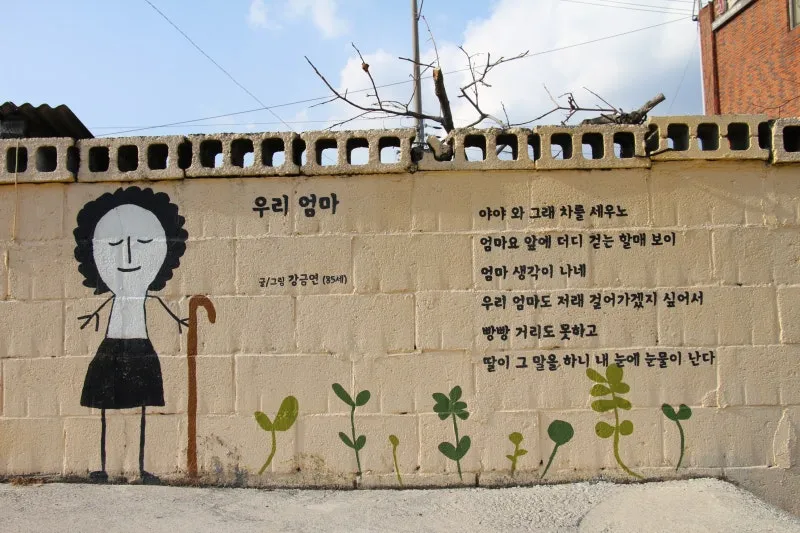 우리 엄마
글/그림 강금연 (85세)
야야 와 그래 차를 세우노
엄마요 앞에 더디 걷는 할매 보이
엄마 생각이 나네
우리 엄마도 저래 걸어가겠지 싶어서
빵빵 거리도 못하고
딸이 그 말을 하니 내 눈에 눈물이 난다